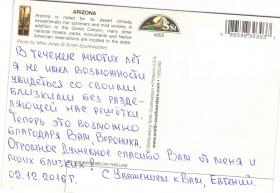 ARIZONA
Arizona is noted for its desert climate,
exceptionally hot summers and mild winters. In
addition to the Grand Canyon, many other
national forests, parks, monuments and Native
American reservations are located in the state.
Photo by Mike Jones © Smith-Southwestern
4000
В течение многих лет
я не имел возможности
увидеться со своими
близкими без разде-
ляющей нас решётки.
Теперь это возможно
благодаря Вам, Вероника.
Огромное Душевное спасибо Вам от меня и
моих близких!
С Уважением к Вам, Евгений
02.12.2016г.